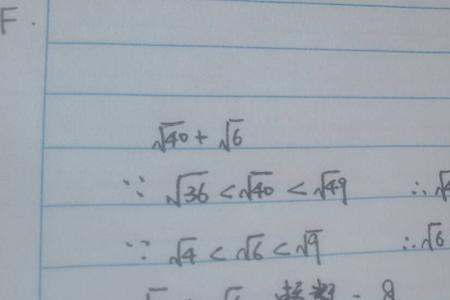 F.
√40 + √6
∵ √36 < √40 < √49 ∴ √4
∵ √4 < √6 < √9 ∴ √6